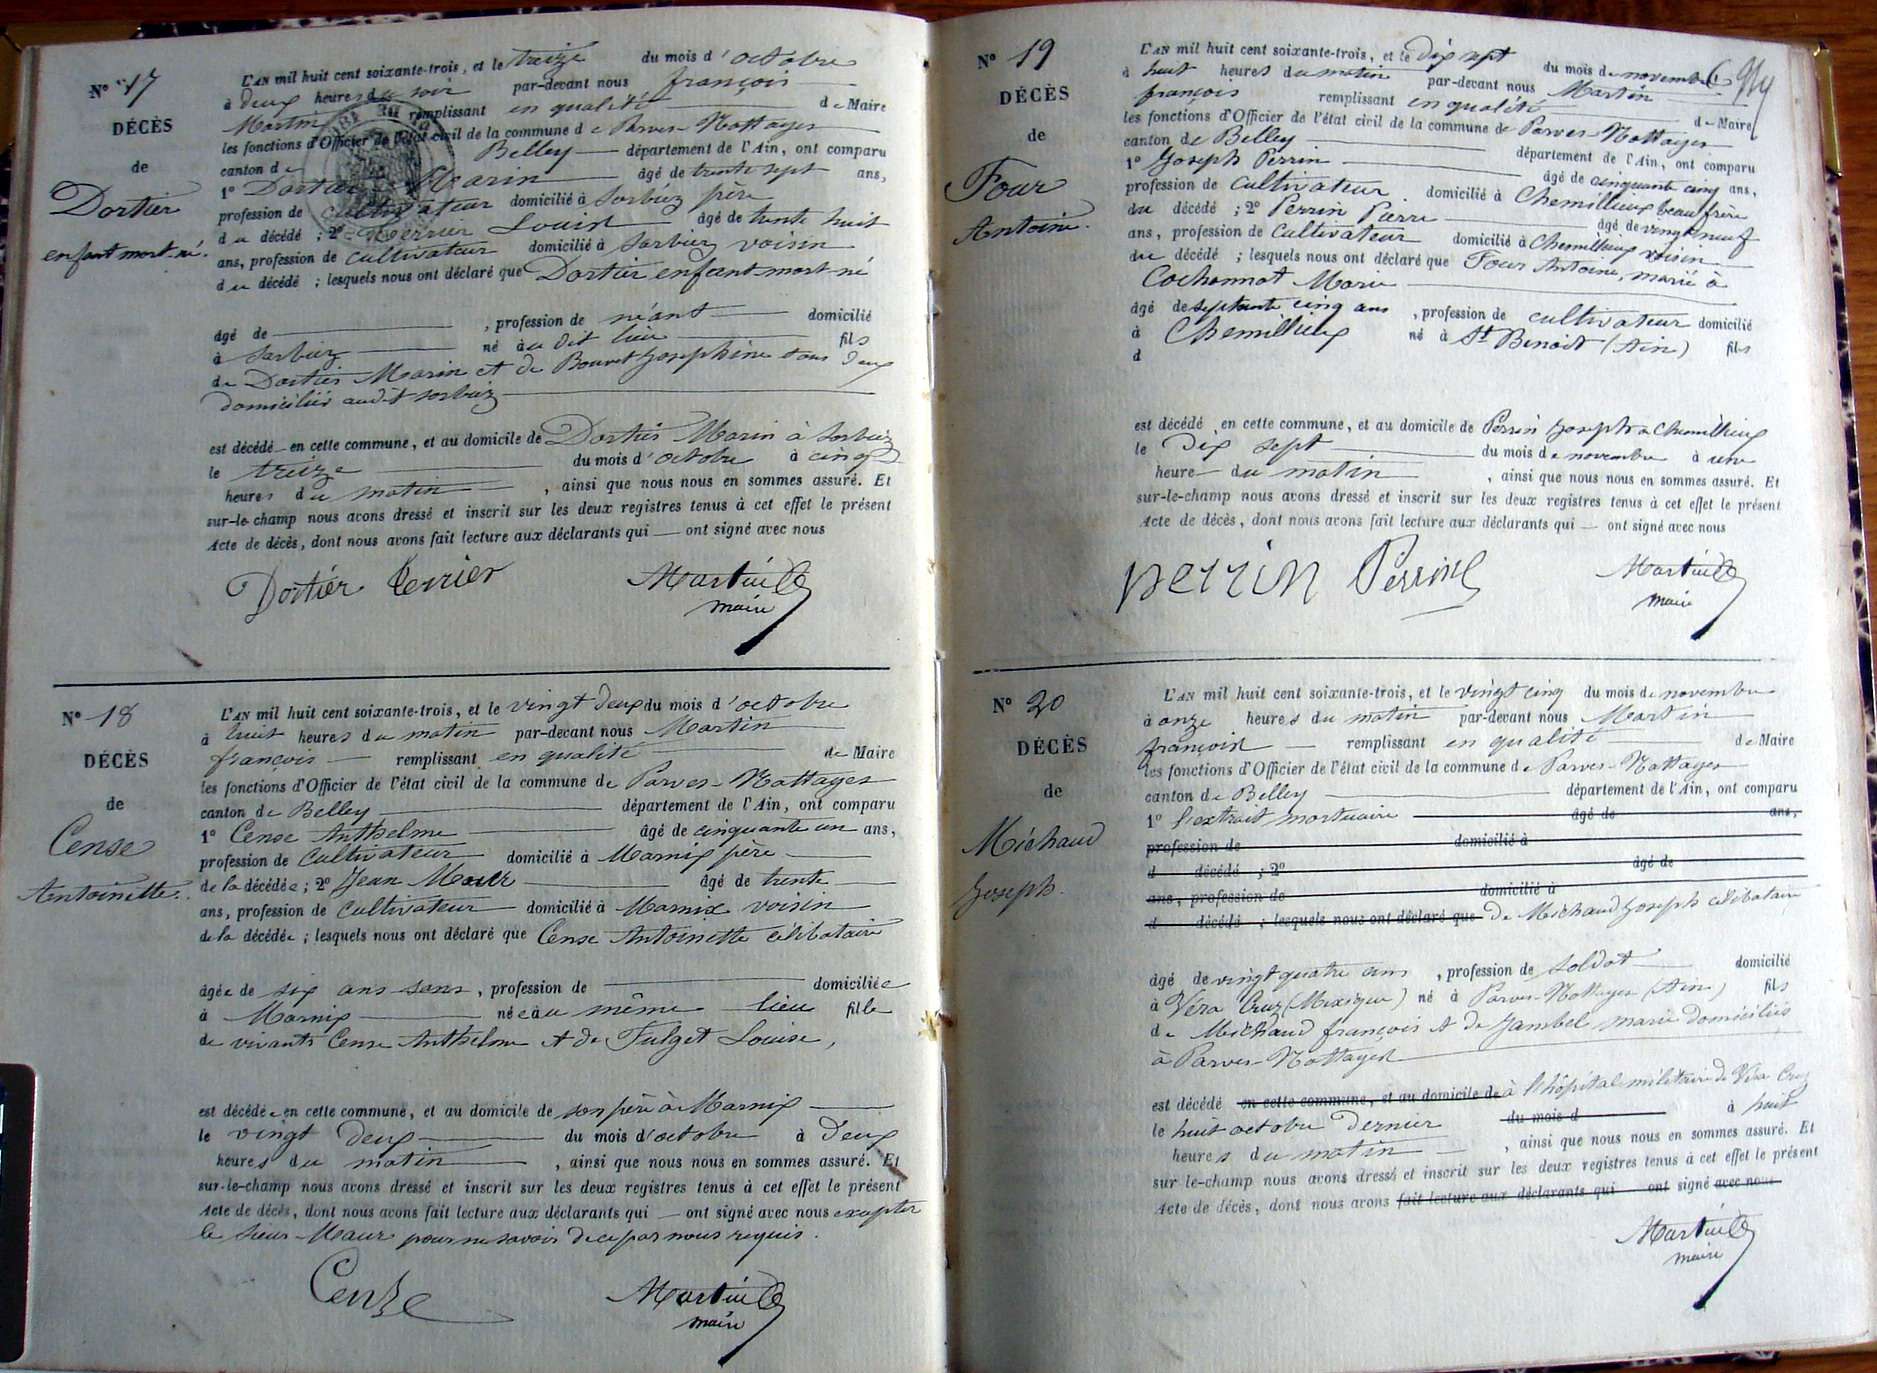 N° 17
DÉCÈS
de
Dortier
enfant mort-né.
L'AN mil huit cent soixante-trois, et le treize du mois d'octobre
à deux heures du soir par-devant nous françois
Martin remplissant en qualité de Maire
les fonctions d'Officier de l'état civil de la commune de Parves-Nattages
canton de Belley département de l'Ain, ont comparu
1° Dortier Marin âgé de trente sept ans,
profession de cultivateur domicilié à Sorbiez père
du décédé ; 2° Perrier Louis âgé de trente huit
ans, profession de cultivateur domicilié à Sorbiez voisin
du décédé ; lesquels nous ont déclaré que Dortier enfant mort-né
âgé de , profession de néant domicilié
à Sorbiez né au dit lieu fils
de Dortier Marin et de Bouvet Josephine tous deux
domiciliés audit Sorbiez
est décédé en cette commune, et au domicile de Dortier Marin à Sorbiez
le treize du mois d'octobre à cinq
heures du matin , ainsi que nous nous en sommes assuré. Et
sur-le-champ nous avons dressé et inscrit sur les deux registres tenus à cet effet le présent
Acte de décès, dont nous avons fait lecture aux déclarants qui — ont signé avec nous
Dortier Perrier Martin
maire
N° 18
DÉCÈS
de
Cense
Antoinette.
L'AN mil huit cent soixante-trois, et le vingt deux du mois d'octobre
à huit heures du matin par-devant nous Martin
françois remplissant en qualité de Maire
les fonctions d'Officier de l'état civil de la commune de Parves-Nattages
canton de Belley département de l'Ain, ont comparu
1° Cense Anthelme âgé de cinquante un ans,
profession de cultivateur domicilié à Marnix père
de la décédée ; 2° Jean Maur âgé de trente
ans, profession de cultivateur domicilié à Marnix voisin
de la décédée ; lesquels nous ont déclaré que Cense Antoinette célibataire
âgée de six ans sans , profession de domiciliée
à Marnix née au même lieu fille
de vivants Cense Anthelme et de Fulget Louise,
est décédée en cette commune, et au domicile de son père à Marnix
le vingt deux du mois d'octobre à deux
heures du matin , ainsi que nous nous en sommes assuré. Et
sur-le-champ nous avons dressé et inscrit sur les deux registres tenus à cet effet le présent
Acte de décès, dont nous avons fait lecture aux déclarants qui — ont signé avec nous excepter
le sieur Maur pour ne savoir de ce par nous requis.
Cense Martin
maire
N° 19
DÉCÈS
de
Four
Antoine.
L'AN mil huit cent soixante-trois, et le dix sept du mois de novembre
à huit heures du matin par-devant nous Martin
françois remplissant en qualité de Maire
les fonctions d'Officier de l'état civil de la commune de Parves-Nattages
canton de Belley département de l'Ain, ont comparu
1° Joseph Perrin âgé de cinquante cinq ans,
profession de cultivateur domicilié à Chemillieu beau frère
du décédé ; 2° Perrin Pierre âgé de vingt neuf
ans, profession de cultivateur domicilié à Chemillieu voisin
du décédé ; lesquels nous ont déclaré que Four Antoine, marié à
Cochonnat Marie
âgé de septante cinq ans , profession de cultivateur domicilié
à Chemillieu né à St Benoit (Ain) fils
d
est décédé en cette commune, et au domicile de Perrin Joseph à Chemillieu
le dix sept du mois de novembre à une
heure du matin , ainsi que nous nous en sommes assuré. Et
sur-le-champ nous avons dressé et inscrit sur les deux registres tenus à cet effet le présent
Acte de décès, dont nous avons fait lecture aux déclarants qui — ont signé avec nous
perrin Perrin Martin
maire
N° 20
DÉCÈS
de
Michaud
Joseph.
L'AN mil huit cent soixante-trois, et le vingt cinq du mois de novembre
à onze heures du matin par-devant nous Martin
françois remplissant en qualité de Maire
les fonctions d'Officier de l'état civil de la commune de Parves-Nattages
canton de Belley département de l'Ain, ont comparu
1° l'extrait mortuaire âgé de ans,
profession de domicilié à
d décédé ; 2° âgé de
ans, profession de domicilié à
d décédé ; lesquels nous ont déclaré que de Michaud Joseph célibataire
âgé de vingt quatre ans , profession de soldat domicilié
à Véra Cruz (Mexique) né à Parves-Nattages (Ain) fils
de Michaud françois et de Jambel marie domiciliés
à Parves-Nattages
est décédé en cette commune, et au domicile de à l'hôpital militaire de Véra Cruz
le huit octobre dernier du mois d à huit
heures du matin , ainsi que nous nous en sommes assuré. Et
sur-le-champ nous avons dressé et inscrit sur les deux registres tenus à cet effet le présent
Acte de décès, dont nous avons fait lecture aux déclarants qui ont signé avec nous
Martin
maire